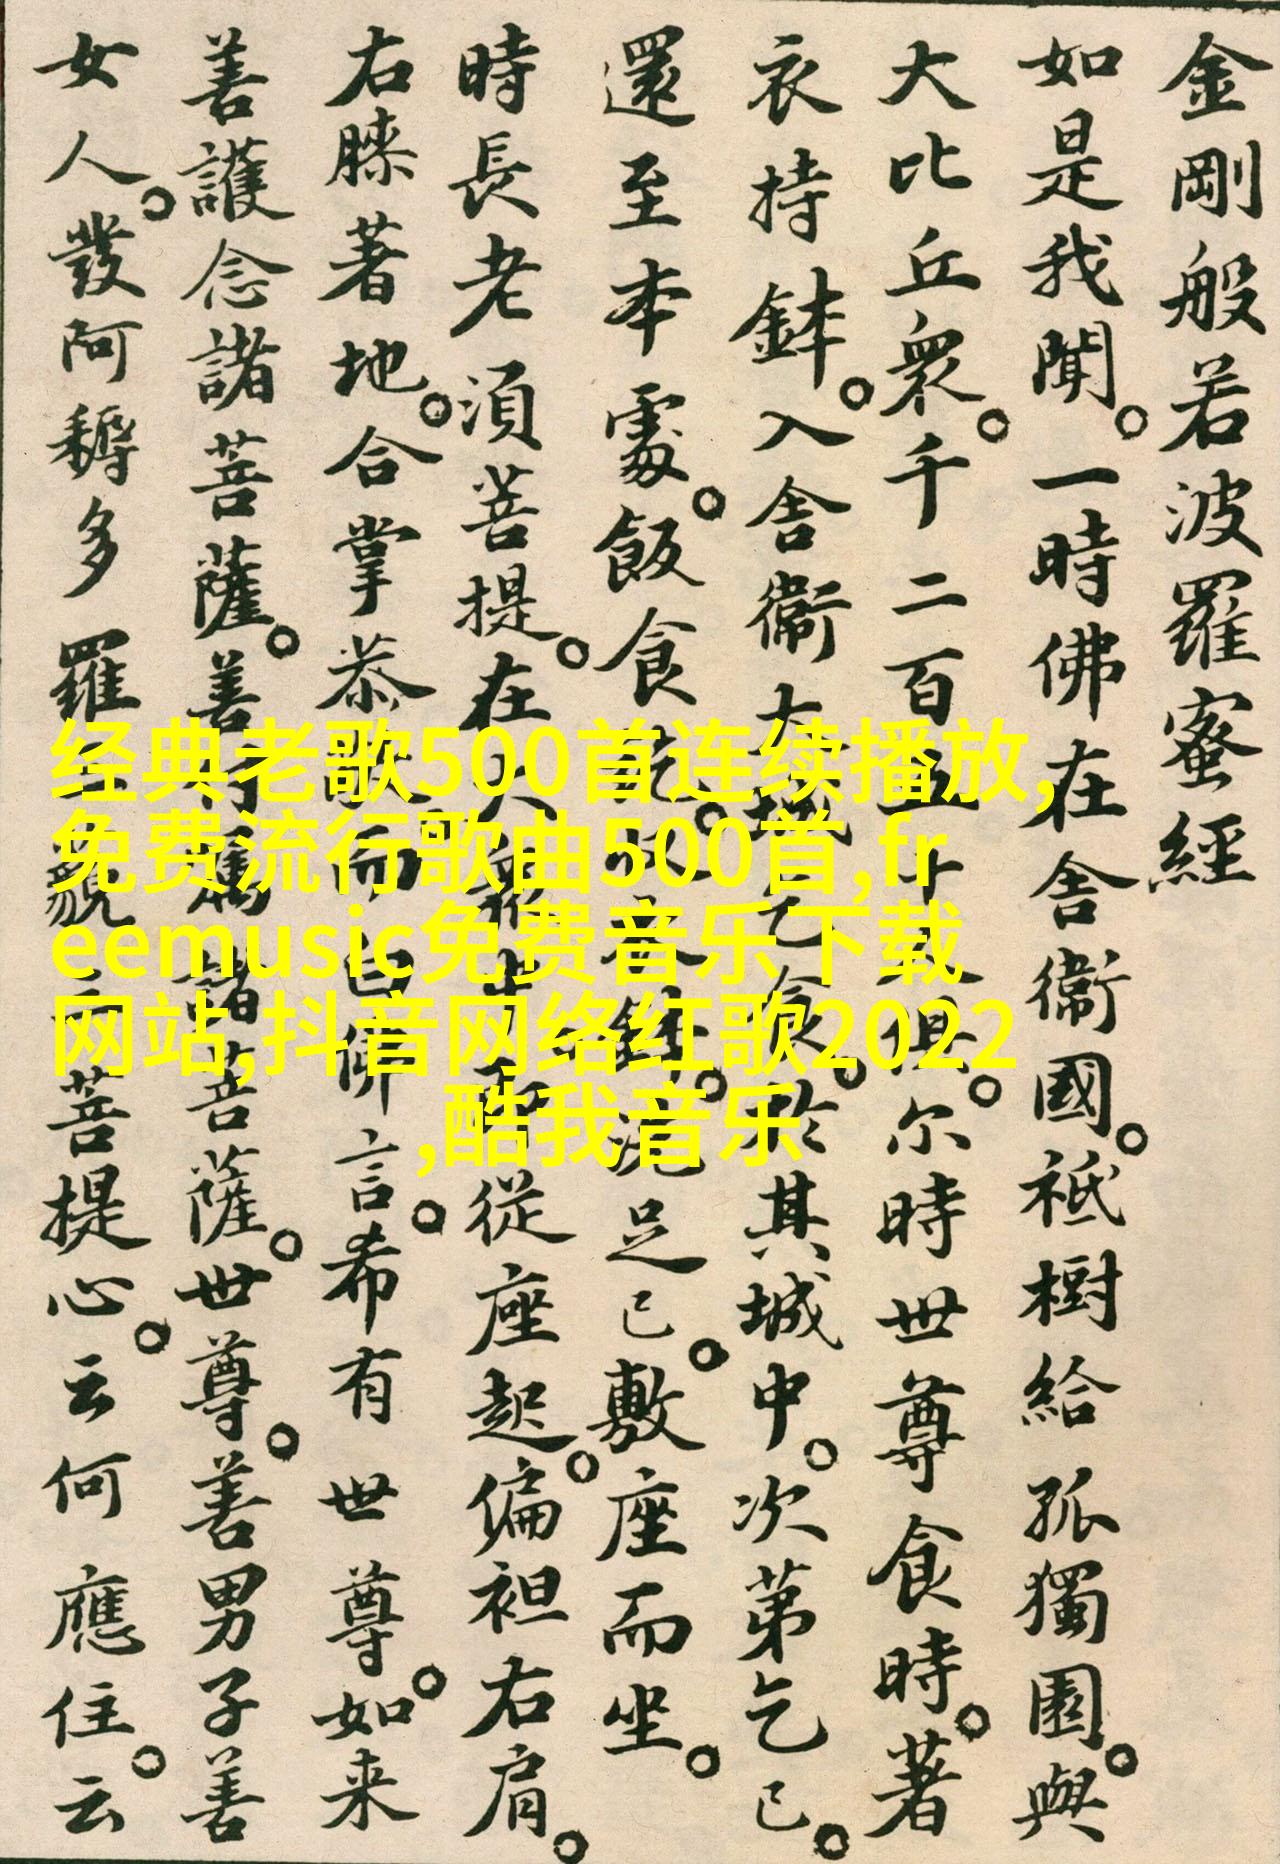 金剛般若波羅蜜經
如是我聞。一時佛在舍衞國。祗樹給孤獨園。與
大比丘衆。千二百五十人俱。尔時世尊食時。著
衣持鉢。入舍衞大城乞食。於其城中。次第乞已。
還至本處。飯食訖。收衣鉢。洗足已。敷座而坐。
時長老須菩提。在大衆中。即從座起。偏袒右肩。
右膝著地。合掌恭敬。而白佛言。希有世尊。如来
善護念諸菩薩。善付屬諸菩薩。世尊。善男子善
女人。發阿耨多羅三藐三菩提心。云何應住。云
经典老歌500首连续播放,
免费流行歌曲500首,fr
eemusic免费音乐下载
网站,抖音网络红歌2022
,酷我音乐